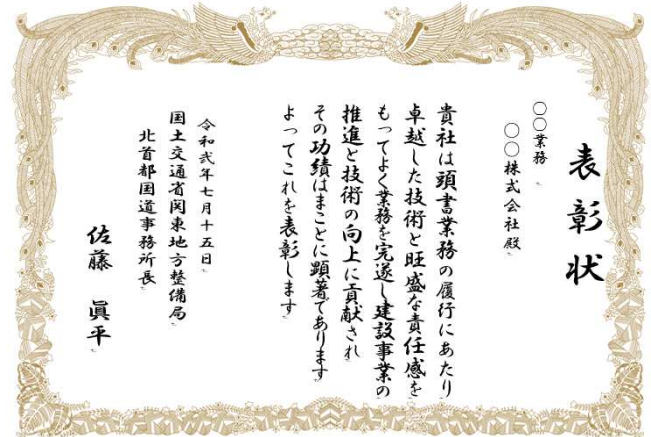 表彰状
〇〇業務
〇〇株式会社殿
貴社は頭書業務の履行にあたり
卓越した技術と旺盛な責任感を
もってよく業務を完遂し建設事業の
推進と技術の向上に貢献され
その功績はまことに顕著であります
よってこれを表彰します
令和弐年七月十五日
国土交通省関東地方整備局
北首都国道事務所長
佐藤 眞平